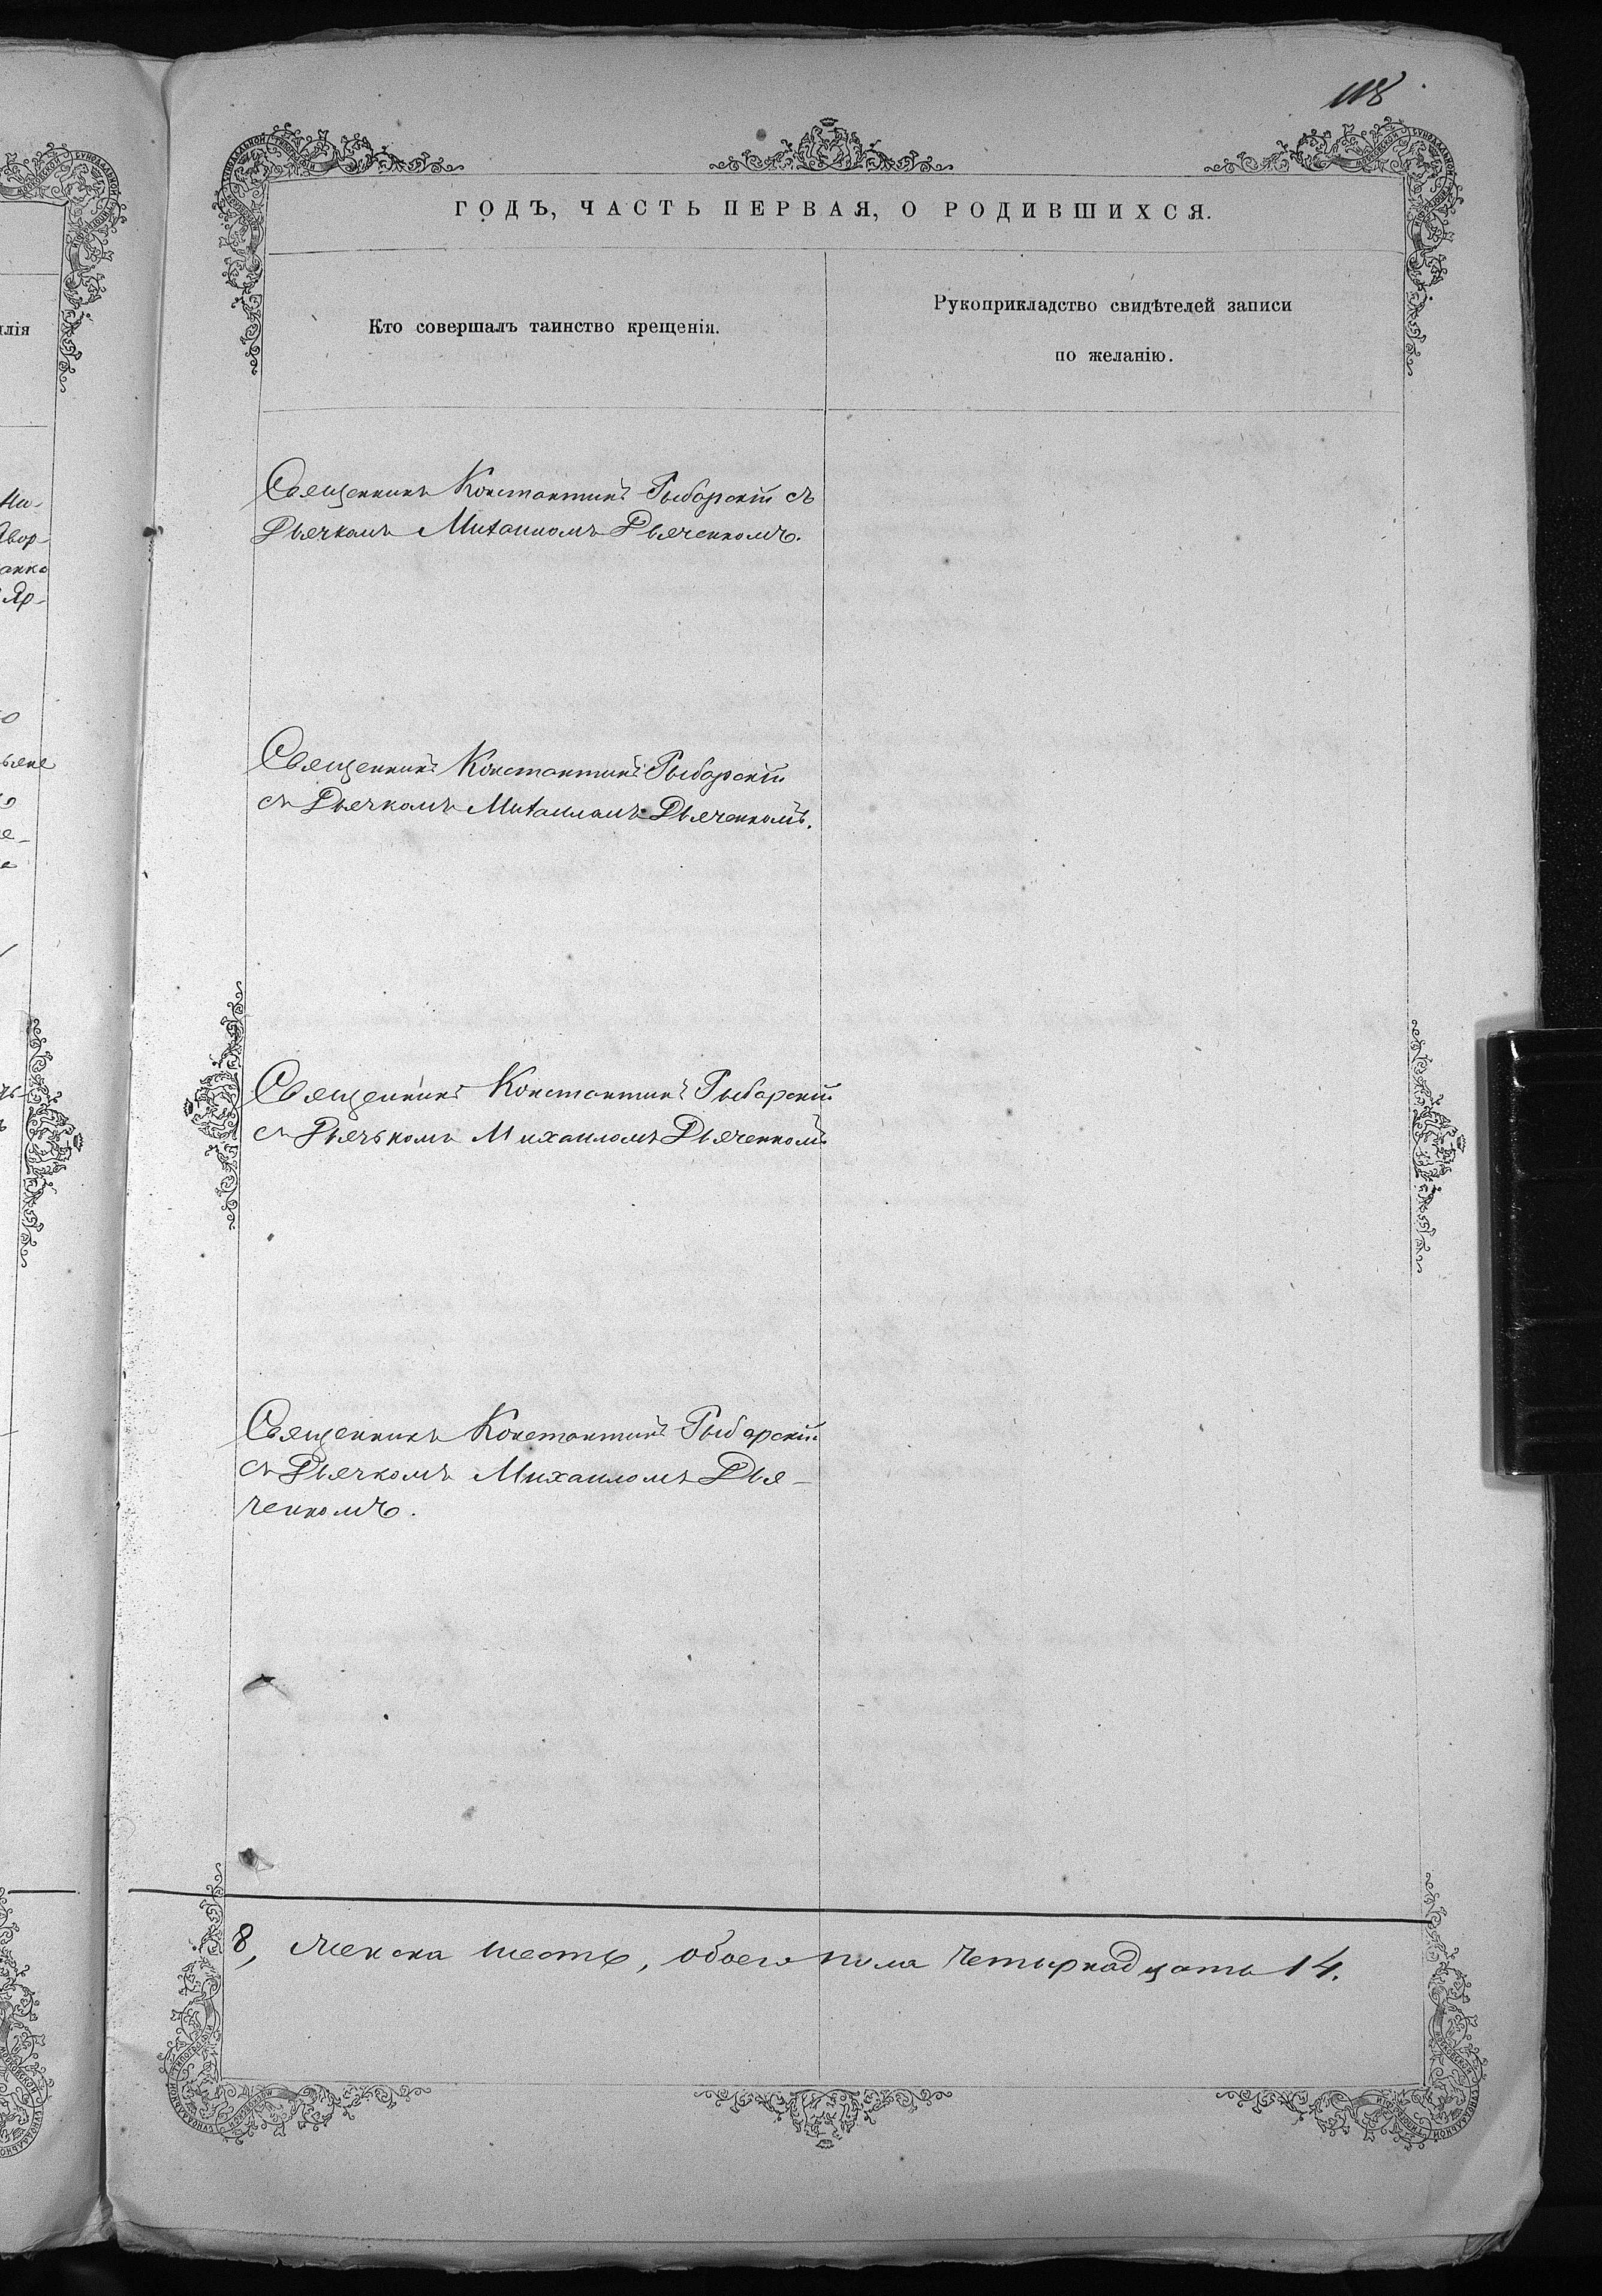 118
ГОДЪ, ЧАСТЬ ПЕРВАЯ, О РОДИВШИХСЯ.
Кто совершалъ таинство крещенія.
Рукоприкладство свидѣтелей записи
по желанію.
Священникъ Константинъ Рыбарскій съ
Дьячкомъ Михаиломъ Дьяченкомъ.
Священникъ Константинъ Рыбарскій
съ Дьячкомъ Михаиломъ Дьяченкомъ.
Священникъ Константинъ Рыбарскій
съ Дьячькомъ Михаиломъ Дьяченкомъ
Священникъ Константинъ Рыбарскій
съ Дьячкомъ Михаиломъ Дья-
ченкомъ.
8, женска шесть, обоего пола четырнадцать 14.